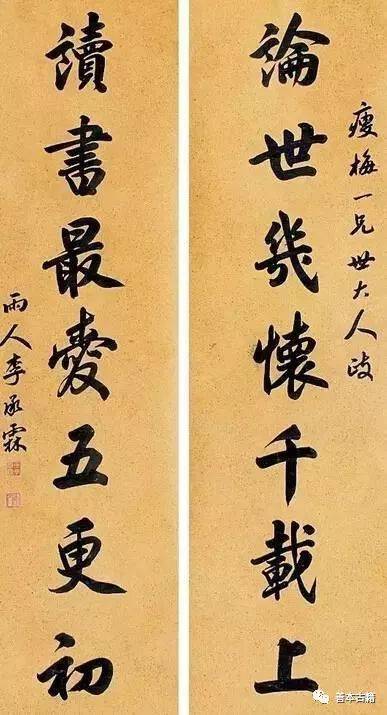 瘦梅一兄世大人政
論世幾懷千載上
讀書最愛五更初
雨人李承霖
善本古籍